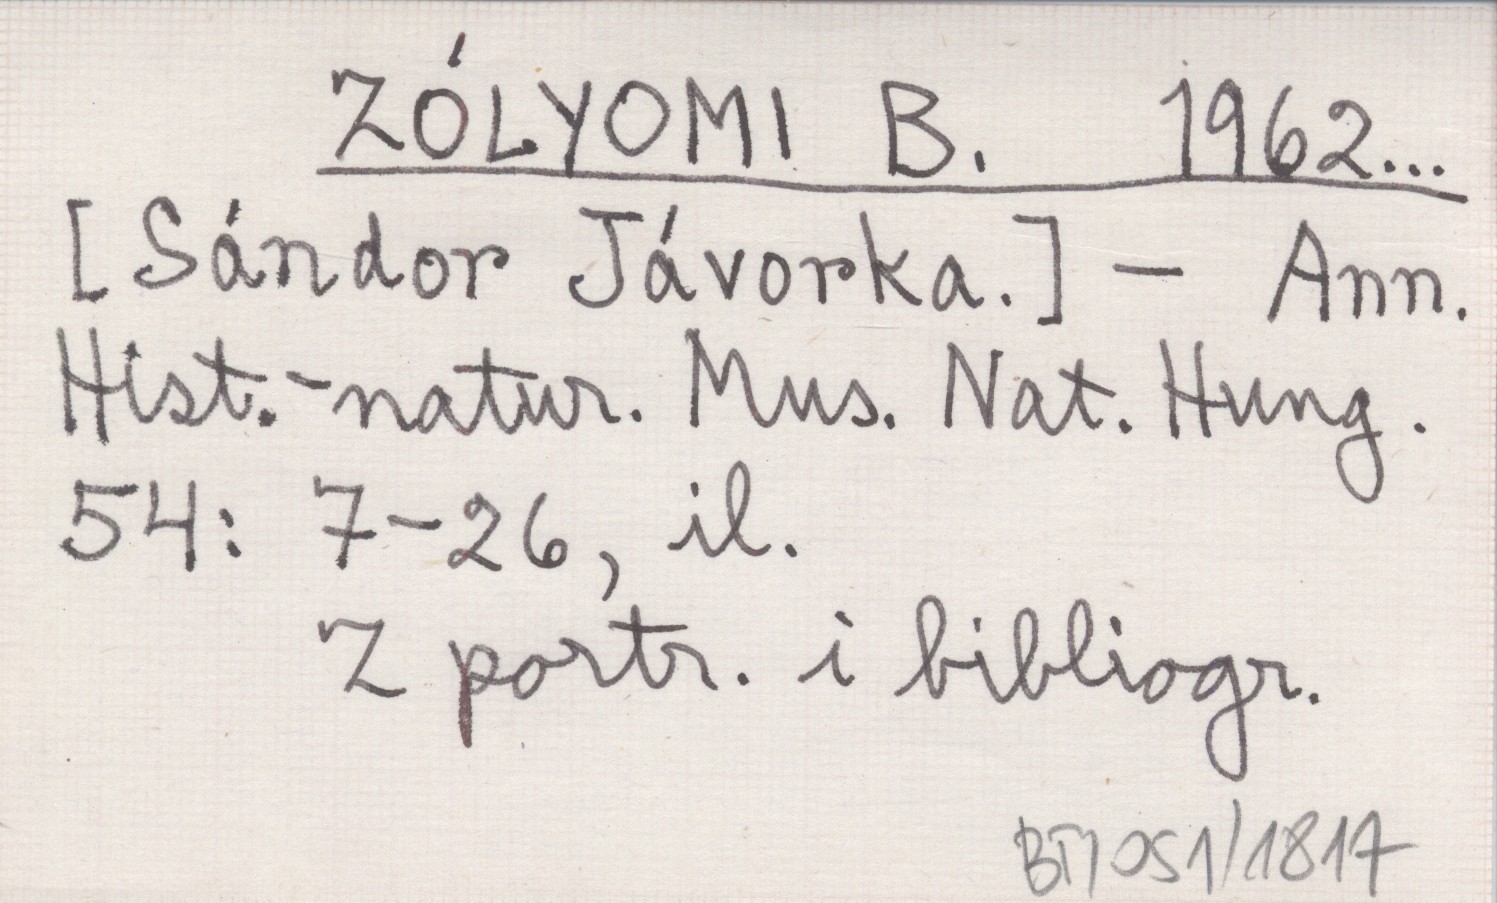 ZÓLYOMI B. 1962...
[Sándor Jávorka.] – Ann.
Hist.-natur. Mus. Nat. Hung.
54: 7-26, il.
Z portr. i bibliogr.
051/1817